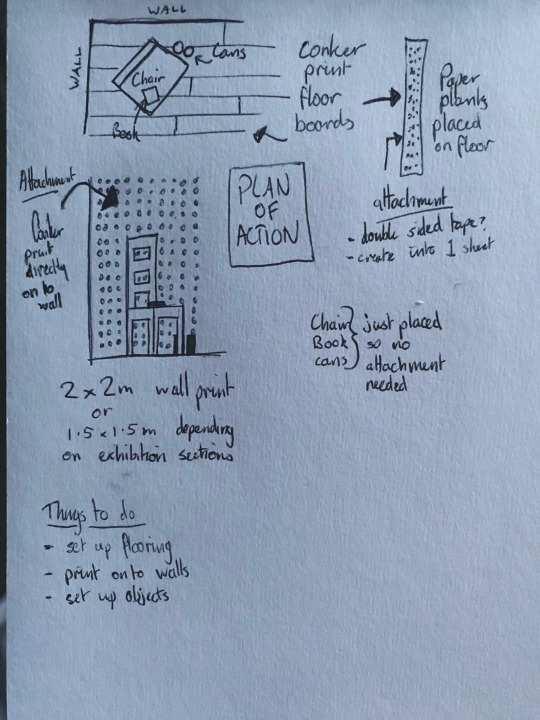 WALL
WALL
Chair
Cans
Book
Conker
print
floor
boards
Paper
plants
placed
on floor
attachment
- double sided tape?
- create into 1 sheet
Attachment
Conker
print
directly
on to
wall
PLAN
OF
ACTION
Chair
Book
cans
just placed
so no
attachment
needed
2 x 2m wall print
or
1.5 x 1.5m depending
on exhibition sections
Things to do
- set up flooring
- print onto walls
- set up objects